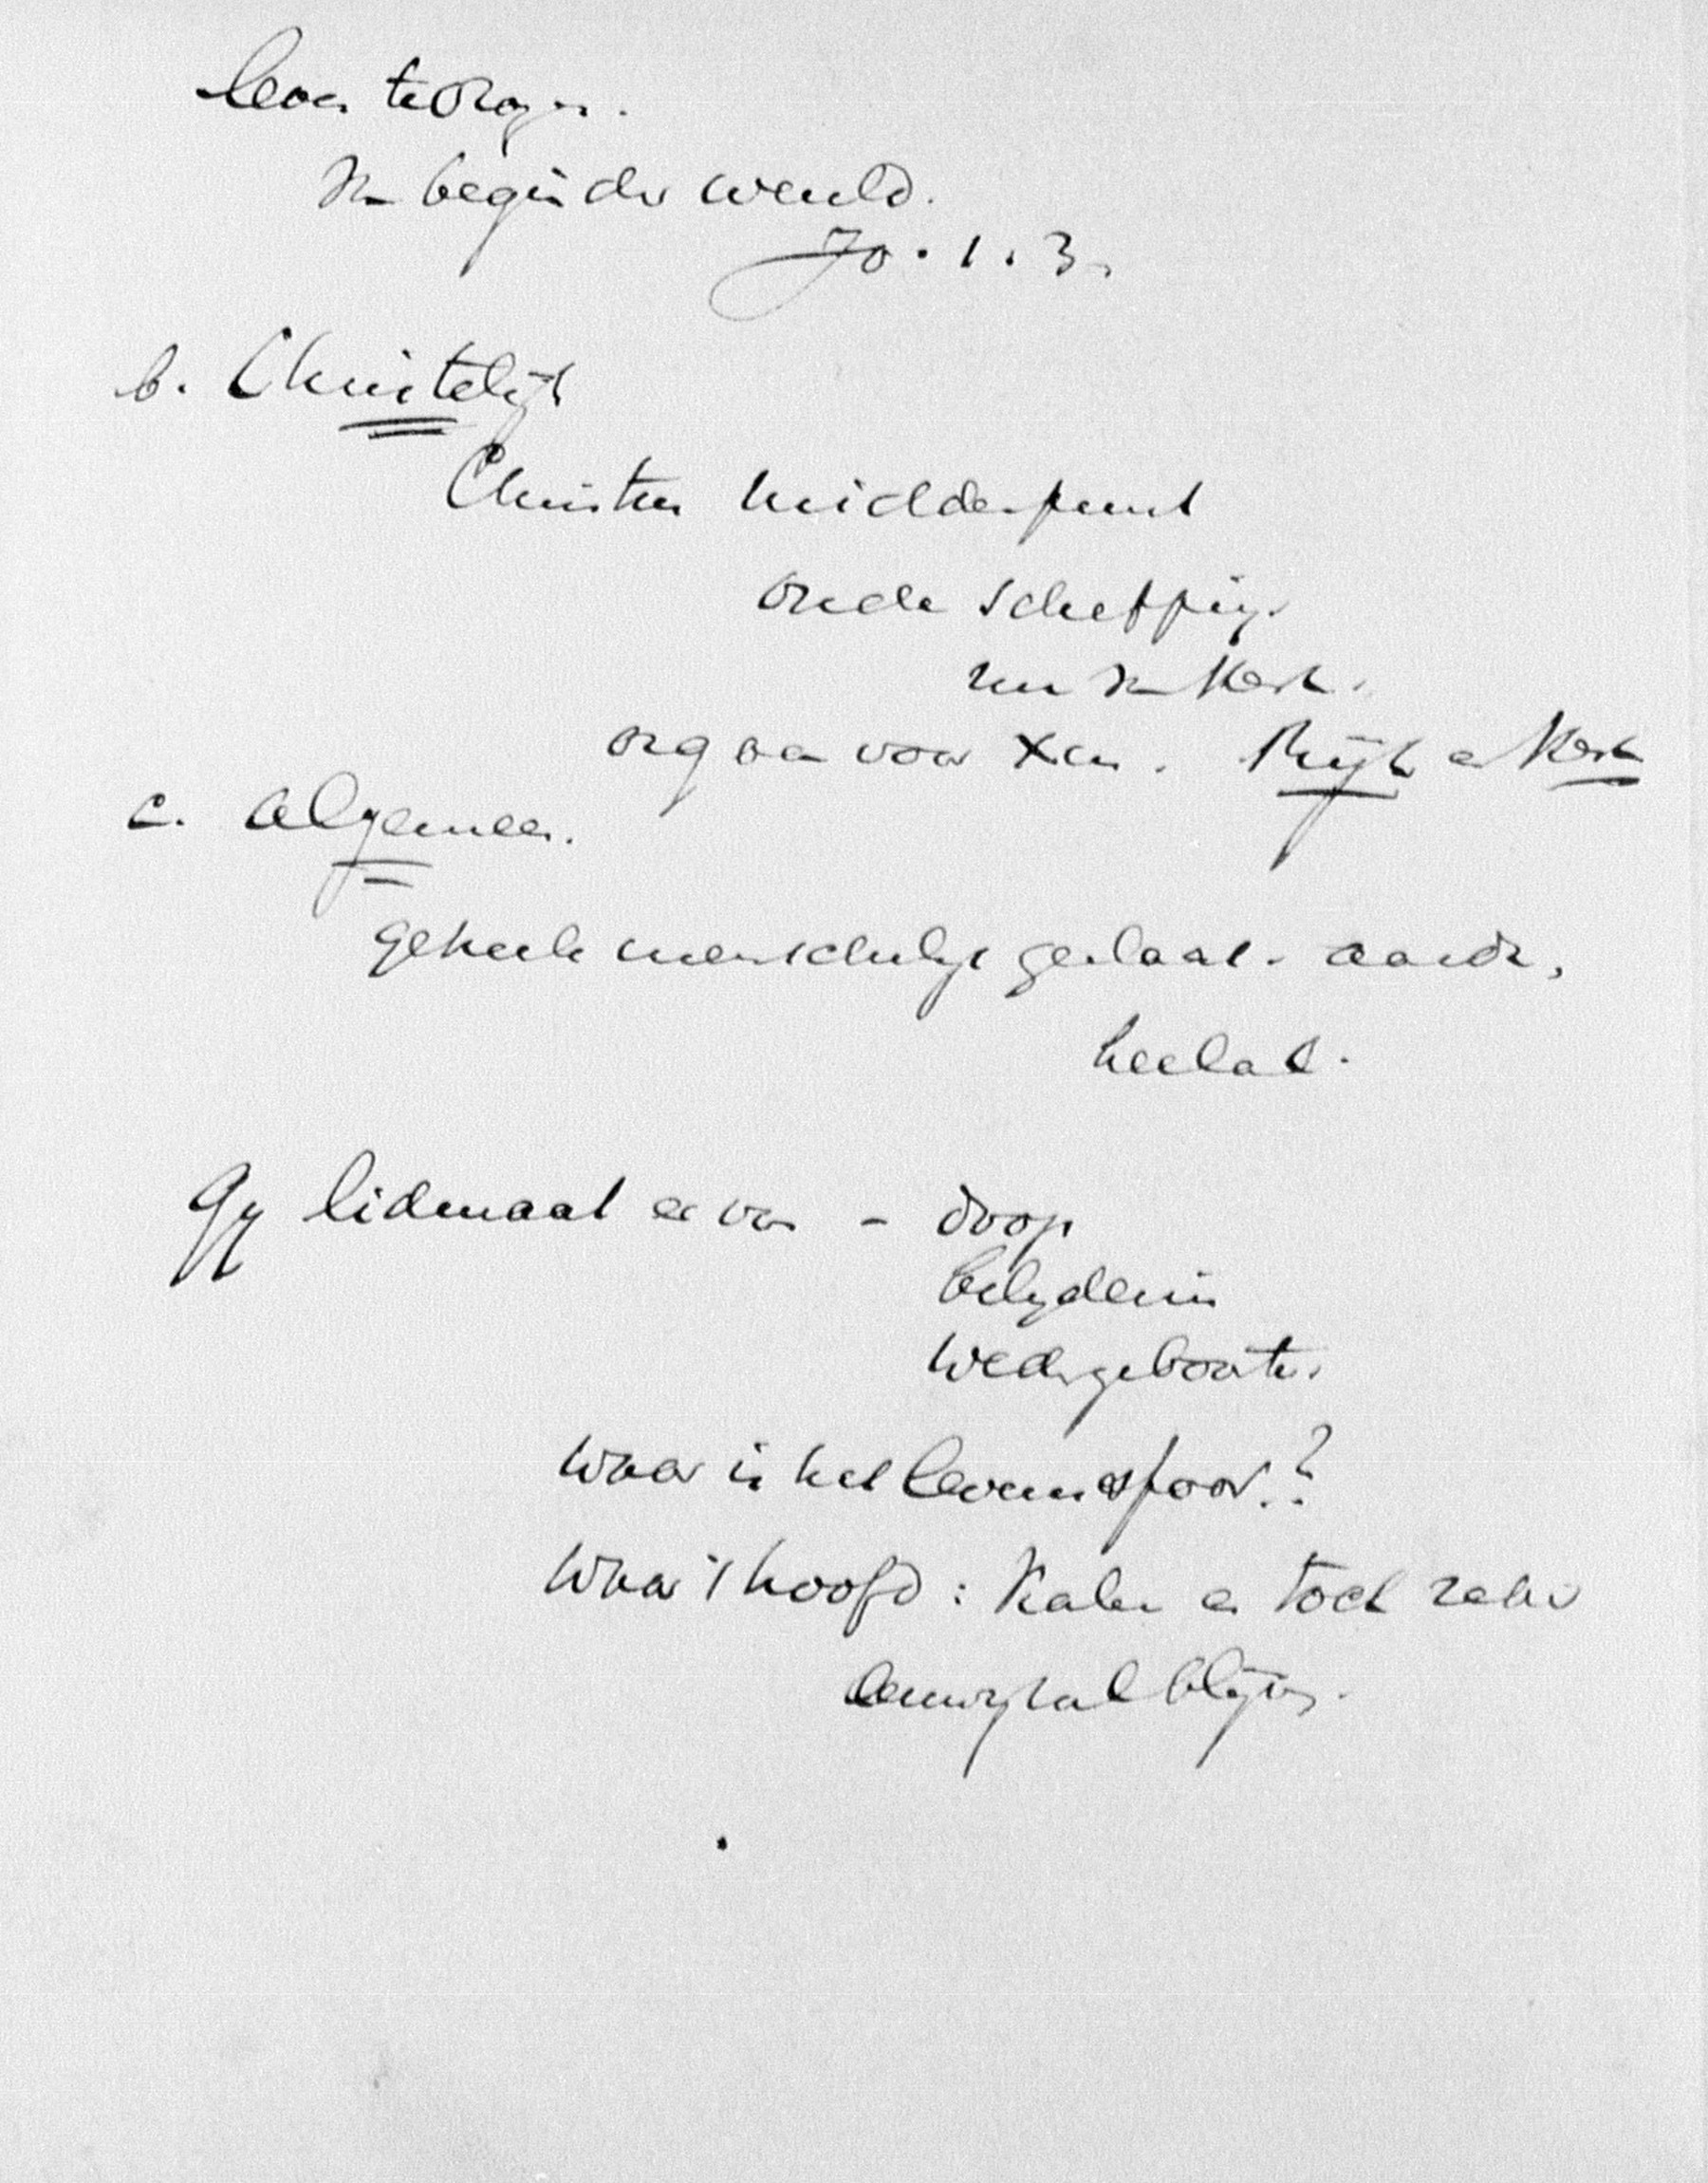 In begin der wereld.
Jo. 1. 3.
b. Christelijk
Christus middenpunt
oude schepping.
nu in Kerk.
orgaan voor Xen. Rijk en Kerk
c. algemeen.
geheele menschelijk geslacht. aarde,
heelal.
Gij lidmaat ervan - doop
belydenis
wedergeboorte.
Waar is het levensspoor.?
Waar 't hoofd: Kalm en toch zeker
blijven.